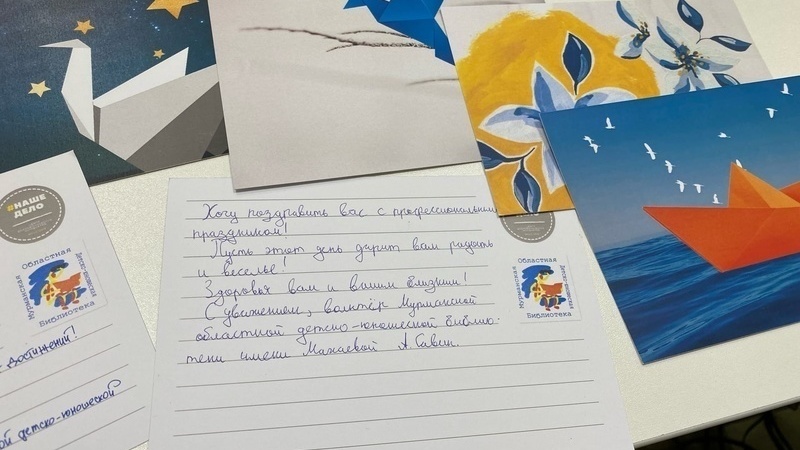 #НАШЕ
ДЕЛО
Областная
Мурманская
Детско-юношеская
Библиотека
достижений!
ой детско-юношеской
Хочу поздравить вас с профессиональным
праздником!
Пусть этот день дарит вам радость
и веселье!
Здоровья вам и вашим близким!
С уважением, волонтёр Мурманской
областной детско-юношеской библио-
теки имени Махаевой А. Савин.
Областная
Мурманская
Детско-юношеская
Библиотека